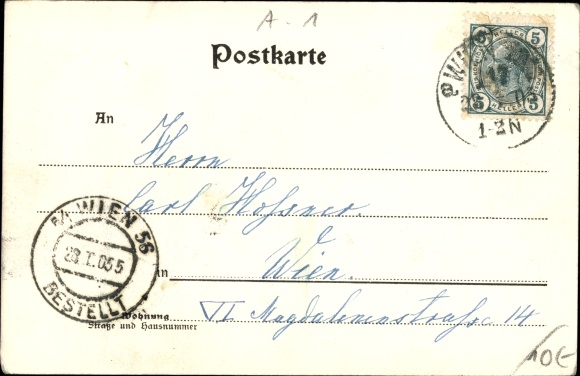 A-1
Postkarte
5 HELLER 5
WIEN
1-2N
5 HELLER 5
An
Herrn
Carl
WIEN 56
28.I.05 5
BESTELLT
in Wien.
Wohnung
Straße und Hausnummer
VI Magdalenenstraße 14
10€